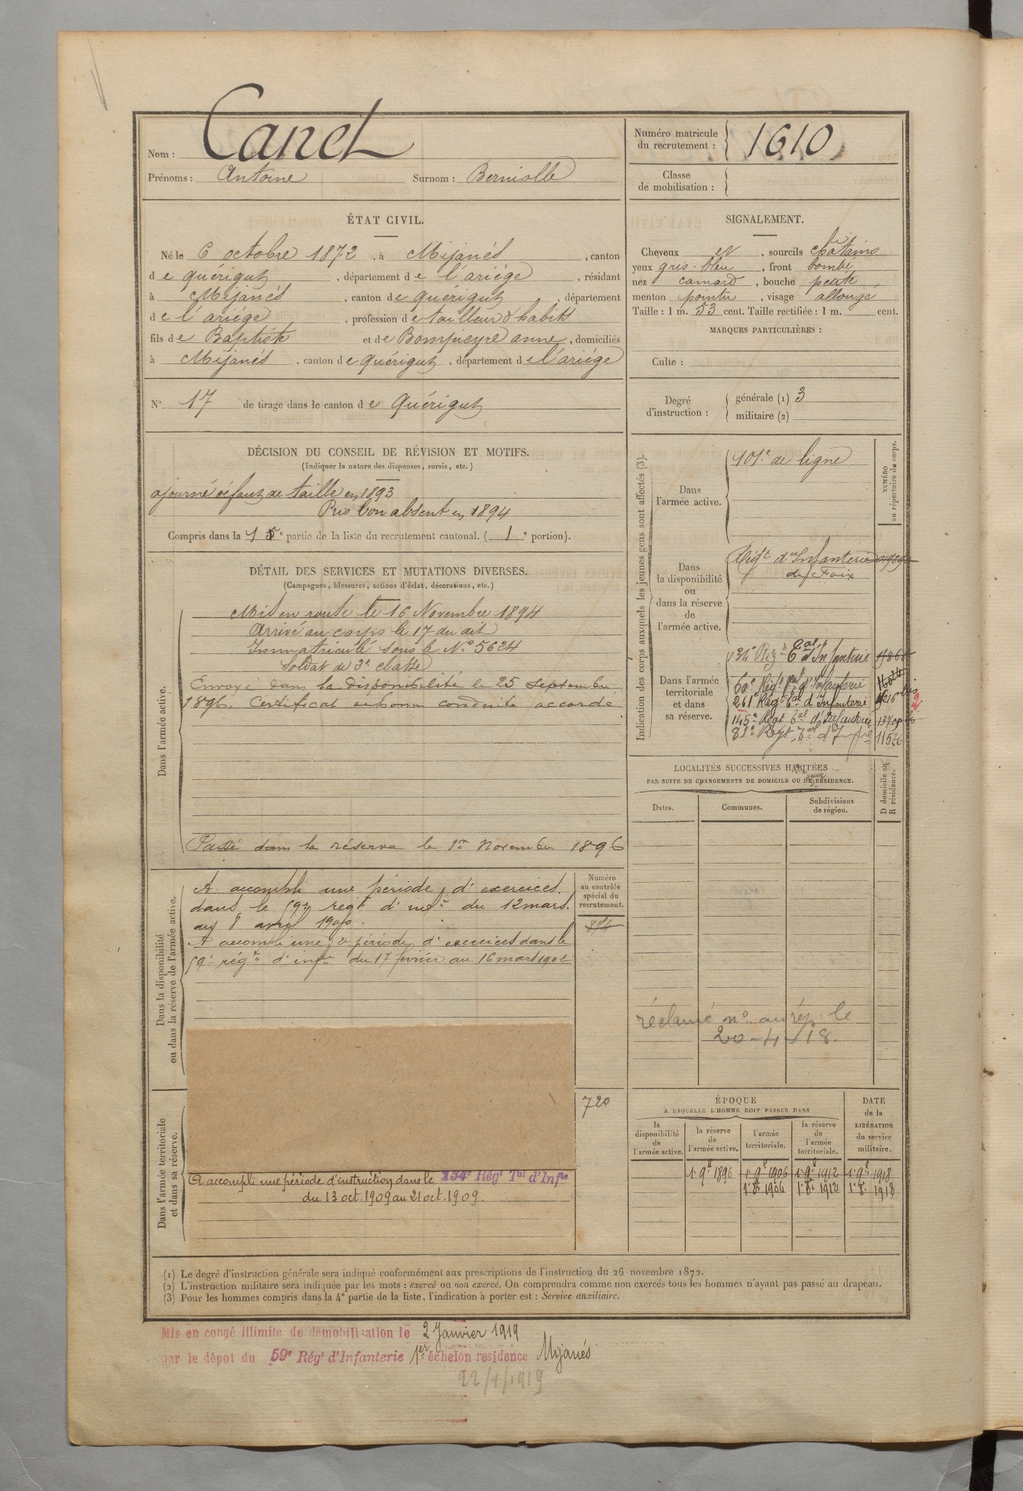 Nom : Canet
Prénoms : Antoine Surnom : Berniolle
Numéro matricule
du recrutement : 1610
Classe
de mobilisation :
ÉTAT CIVIL.
Né le 6 octobre 1872, à Mijanès, canton
de quérigut, département de l'ariége, résidant
à Mijanès, canton de quérigut, département
de l'ariége, profession de tailleur d'habits
fils de Baptiste et de Bompieyre anne, domiciliés
à Mijanès, canton de quérigut, département de l'ariége
SIGNALEMENT.
Cheveux et, sourcils châtains
yeux gris-bleu, front bombé
nez camard, bouche petite
menton pointu, visage allongé
Taille : 1 m. 53 cent. Taille rectifiée : 1 m. cent.
MARQUES PARTICULIÈRES :
Culte :
N° 17 de tirage dans le canton de Quérigut
Degré
d'instruction :
générale (1) 3
militaire (2)
DÉCISION DU CONSEIL DE RÉVISION ET MOTIFS.
(Indiquer la nature des dispenses, sursis, etc.)
ajourné défaut de taille en 1893
Pris bon absent en 1894
Compris dans la 1e partie de la liste du recrutement cantonal. (1e portion).
DÉTAIL DES SERVICES ET MUTATIONS DIVERSES.
(Campagnes, blessures, actions d'éclat, décorations, etc.)
Dans l'armée active.
Mis en route le 16 Novembre 1894
Arrivé au corps le 17 du dit
Immatriculé sous le No 5624
Soldat de 2e classe
Envoyé dans la disponibilité le 25 septembre
1896. Certificat de bonne conduite accordé
Passé dans la réserve le 1er Novembre 1896
Indication des corps auxquels les jeunes gens sont affectés (3).
NUMÉRO
au répertoire du corps.
Dans
l'armée active.
101e de ligne
Dans
la disponibilité
ou
dans la réserve de
l'armée active.
Régt d'Infanterie
de Foix
Dans l'armée
territoriale
et dans
sa réserve.
134e Régt Tal d'Infanterie
60e Régt Tal d'Infanterie
261e Régt Tal d'Infanterie
145e Régt Tal d'Infanterie
83e Régt Tal d'Infrie 11526
LOCALITÉS SUCCESSIVES HABITÉES
PAR SUITE DE CHANGEMENTS DE DOMICILE OU DE RÉSIDENCE.
D domicile ou
R résidence.
Dates. Communes. Subdivisions
de région.
réclamé no au rép. le
20-4-18
Dans la disponibilité
ou dans la réserve de l'armée active.
A accompli une période d'exercices
dans le 59e regt d'infie du 12 mars
au 8 avril 1900.
A accompli une 2e période d'exercices dans le
59e régt d'infie du 17 février au 16 mars 1902
Numéro
au contrôle
spécial du
recrutement.
720
Dans l'armée territoriale
et dans sa réserve.
A accompli une période d'instruction dans le 134e Régt Tal d'Infie
du 13 oct. 1909 au 21 oct. 1909
ÉPOQUE
À LAQUELLE L'HOMME DOIT PASSER DANS
DATE
de la
LIBÉRATION
du service
militaire.
la
disponibilité
de
l'armée active.
la réserve
de
l'armée active.
l'armée
territoriale.
la réserve
de
l'armée
territoriale.
1. 9e 1896 1. 9e 1906 1. 9e 1912 1. 9e 1918
1. 8e 1906 1. 8e 1912 1. 8e 1918
(1) Le degré d'instruction générale sera indiqué conformément aux prescriptions de l'instruction du 26 novembre 1872.
(2) L'instruction militaire sera indiquée par les mots : exercé ou non exercé. On comprendra comme non exercés tous les hommes n'ayant pas passé au drapeau.
(3) Pour les hommes compris dans la 4e partie de la liste, l'indication à porter est : Service auxiliaire.
Mis en congé illimité de démobilisation le 2 Janvier 1919
par le dépôt du 59e Régt d'Infanterie 1er échelon résidence Mijanès
22/1/1919